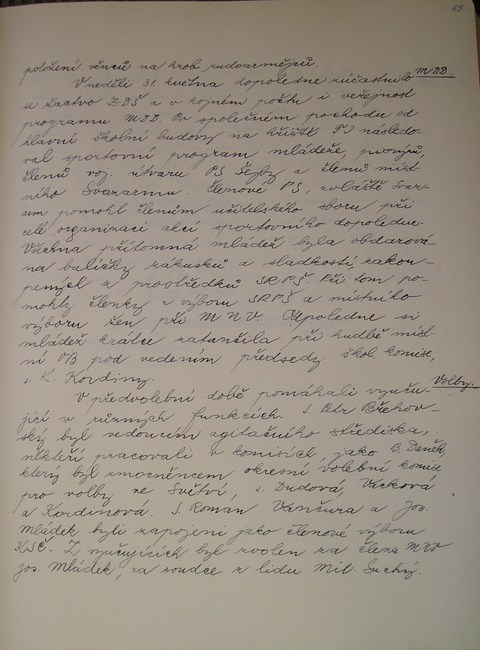 69
položení věnců na hrob rudoarmějců.
V neděli 31. května dopoledne zúčastnilo MDD.
se žactvo ZDŠ a v hojném počtu i veřejnost
programu MDD. Po společném pochodu od
hlavní školní budovy na hřiště TJ následo-
val sportovní program mládeže, pionýrů,
členů voj. útvaru PS Sejby a členů míst-
ního Svazarmu. Členové PS, zvláště svaz-
arm pomohl členům učitelského sboru při
celé organizaci akcí sportovního dopoledne.
Všechna přítomná mládež byla obdarová-
na balíčky zákusků a sladkostí, zakou-
pených z prostředků SRPŠ. Při tom po-
mohly členky z výboru SRPŠ a místního
výboru žen při MNV. Odpoledne si
mládež krátce zatančila při hudbě míst-
ní OB pod vedením předsedy škol. komise,
s. K. Kordiny.
V předvolební době pomáhali vyuču- Volby.
jící v různých funkcích. S. Petr Břehov-
ský byl vedoucím agitačního střediska,
někteří pracovali v komisích, jako B. Daněk,
který byl zmocněncem okresní volební komise
pro volby ve Světví, s. Dudová, Vacková
a Kordinová. S. Roman Vančura a Jos.
Mládek byli zapojeni jako členové výboru
KSČ. Z vyučujících byl zvolen za člena MNV
Jos. Mládek, za soudce z lidu Mil. Suchý.